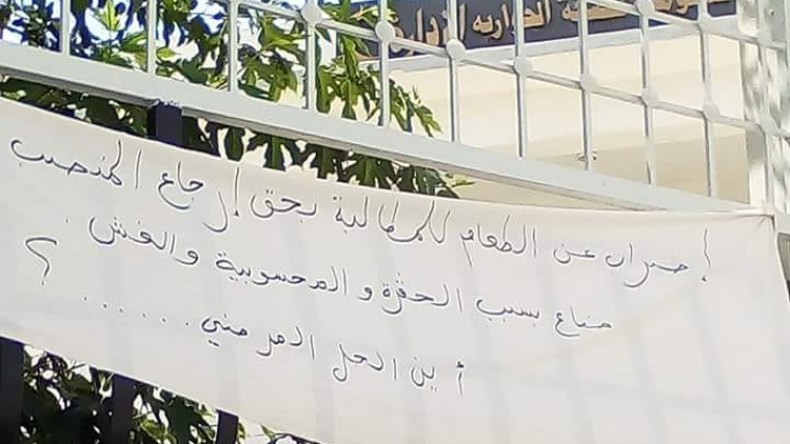 الجوارية الإدارة
إضراب عن الطعام للمطالبة بحق إرجاع المنصب
ضاع بسبب الحڨرة و المحسوبية والغش .
أين الحل المرضي ...... ؟